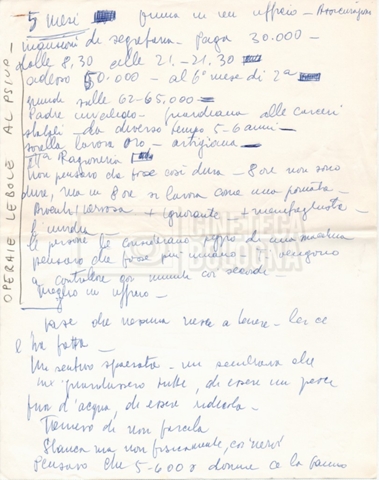 5 mesi prima in un ufficio - Assicurazioni
mansioni di segretaria - paga 30.000 -
dalle 8,30 alle 21 - 21.30
adesso 50.000 - al 6° mese di 2a
prende sulle 62-65.000
Padre invalido - guardiano alle carceri
da diverso tempo 5-6 anni -
sorella lavora oro - artigiana
Ragioneria
Non pensavo da fosse così dura - 8 ore non sono
dure, ma in 8 ore si lavora come una
nervosa + ignorante + menefreghista -
le prime le consideravo pezzo di una macchina
pensavo che fosse più umano - vengono
a controllare coi minuti coi secondi -
meglio in ufficio -
pare che nessuna riesca a tenere - lei ce
l'ha fatta -
Mi sentivo sparata - mi sembrava che
mi guardassero tutte, di essere un pesce
fuor d'acqua, di essere ridicola -
Timore di non farcela
Stanca ma non fisicamente, coi nervi
Pensavo che 5-600 donne ce la fanno
OPERAIE LEBOLE AL PSIUP -
CINETECA
BOLOGNA